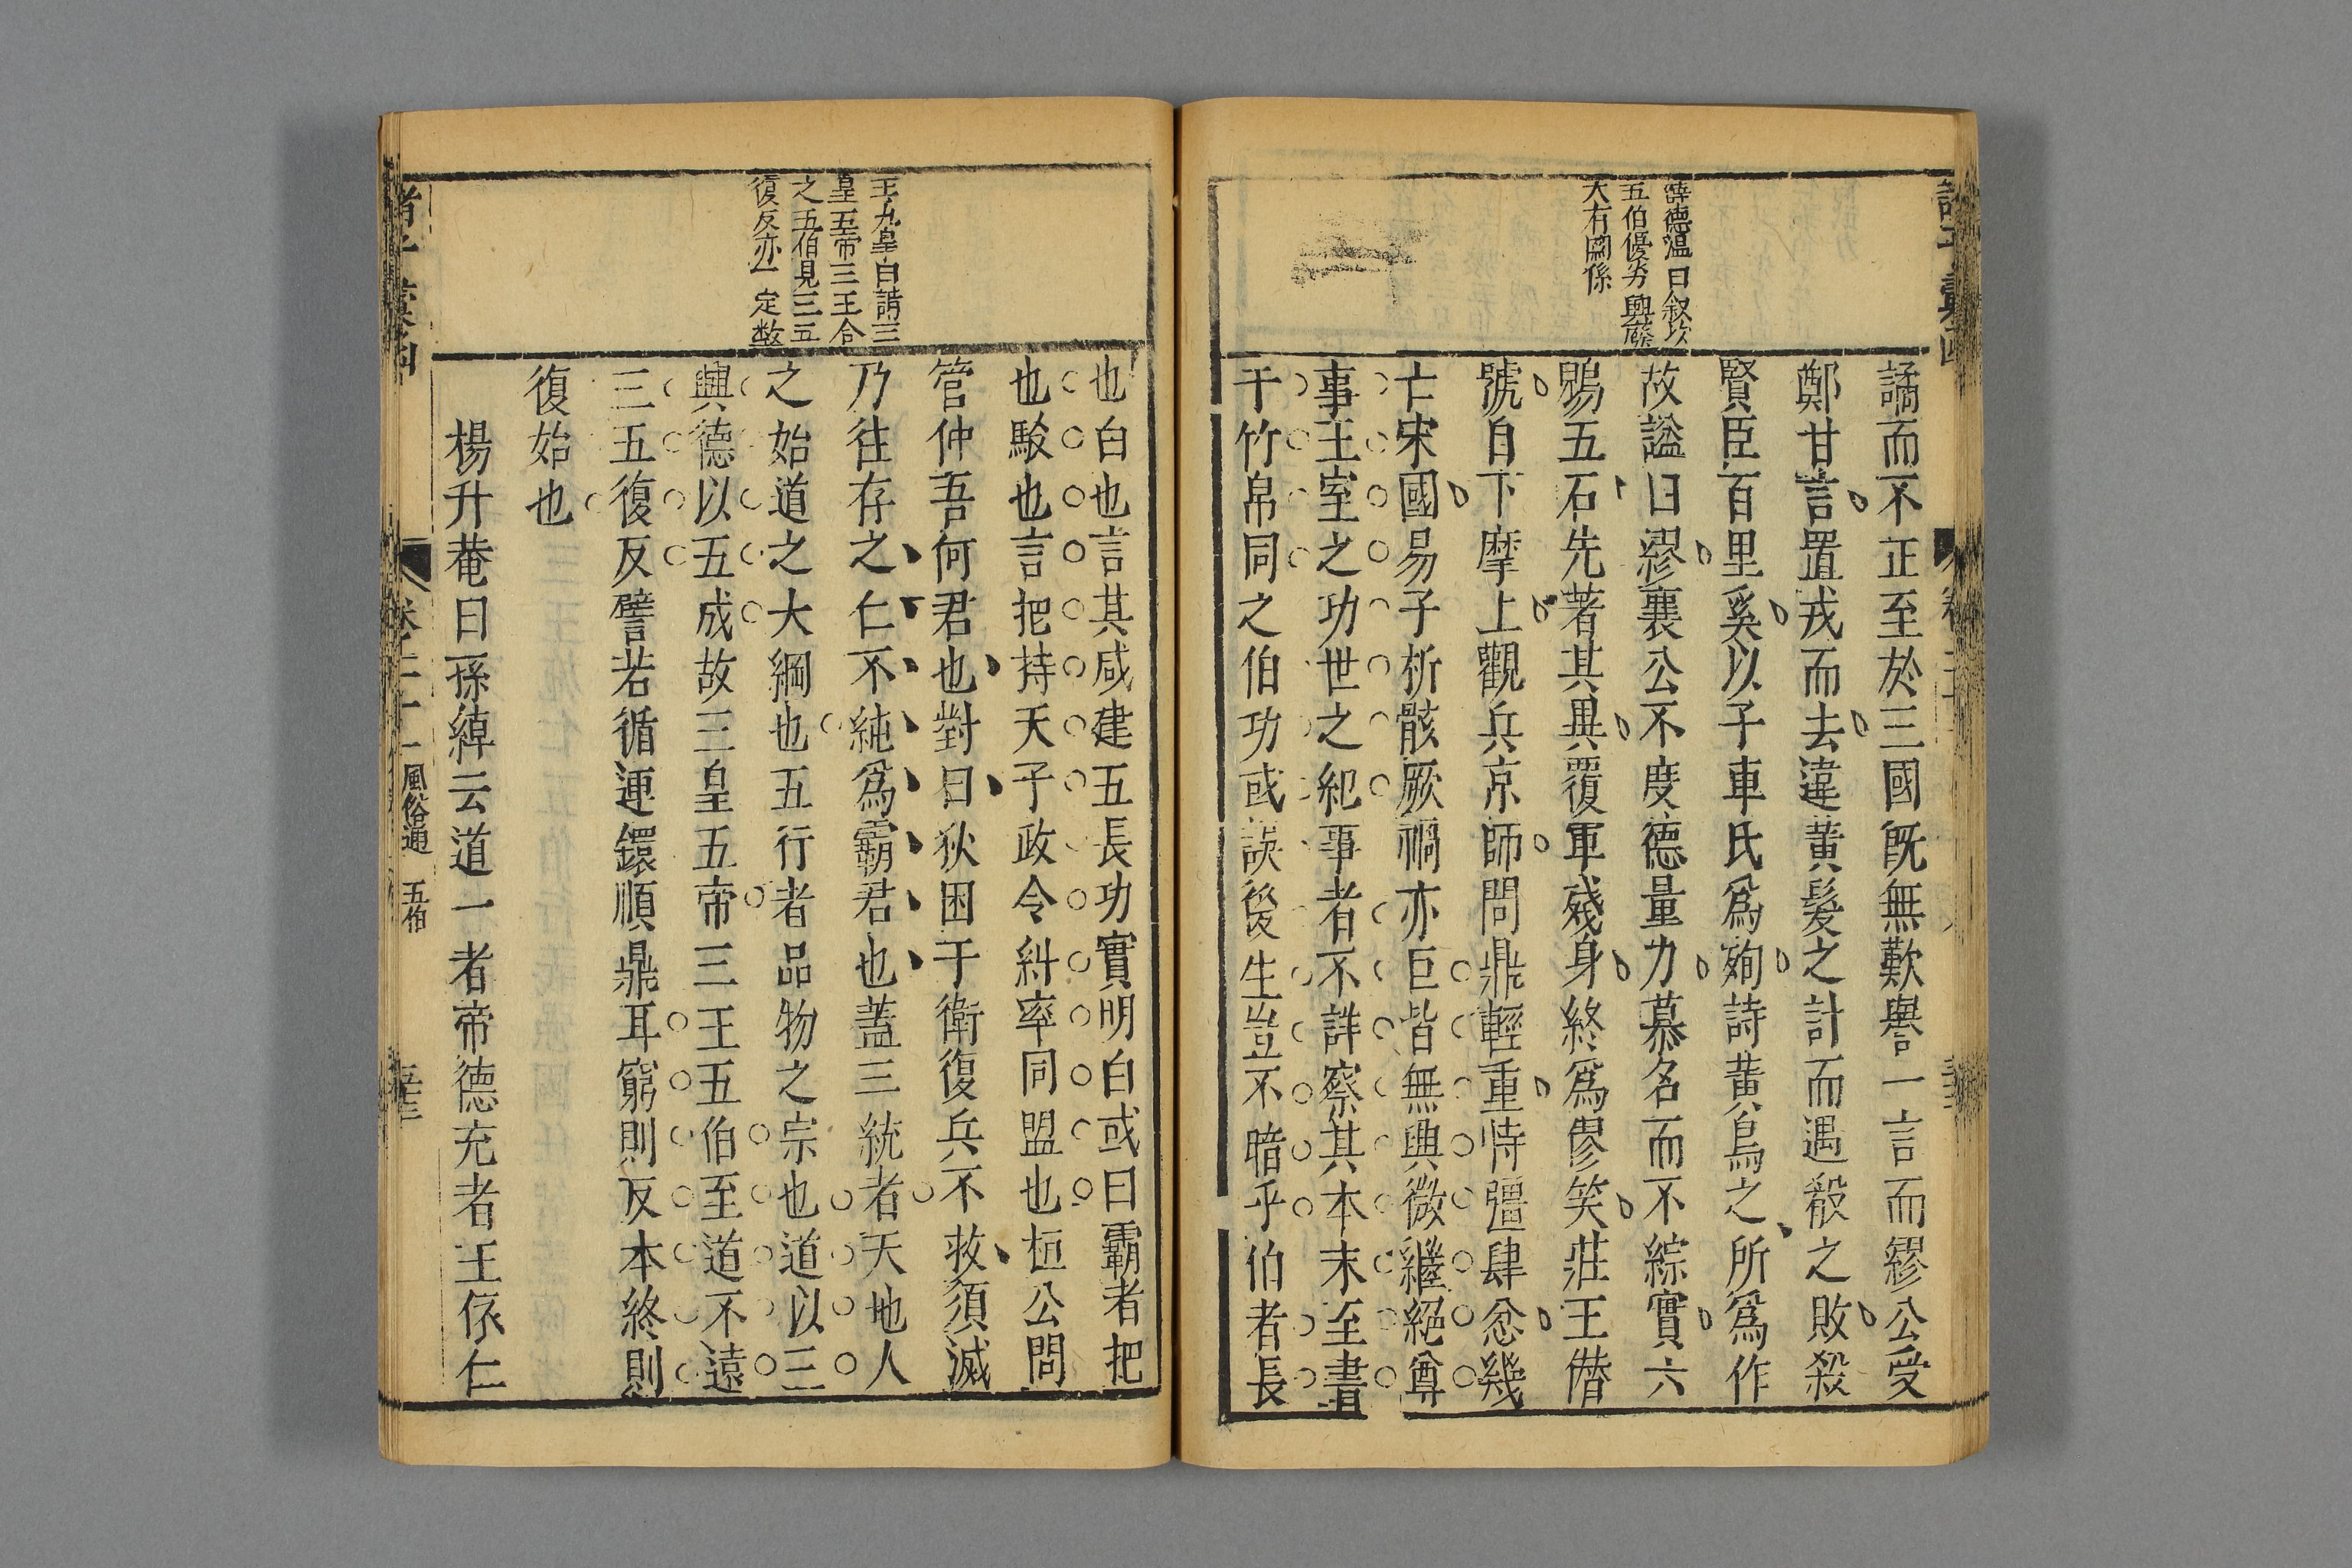 薛德溫曰叙次
五伯優劣興廢
大有關係
譎而不正至於三國既無歎譽一言而繆公受
鄭甘言置戎而去違黃髮之計而遇殽之敗殺
賢臣百里奚以子車氏爲殉詩黃鳥之所爲作
故謚曰繆襄公不度德量力慕名而不綜實六
鶂五石先著其異覆軍殘身終爲僇笑莊王僭
號自下摩上觀兵京師問鼎輕重恃彊肆忿幾
亡宋國易子析骸厥禍亦巨皆無興微繼絕尊
事王室之功世之紀事者不詳察其本末至書
于竹帛同之伯功或誤後生豈不暗乎伯者長
王九皐曰請三
皇五帝三王合
之五伯見三五
復反亦一定數
也白也言其咸建五長功實明白或曰霸者把
也駮也言把持天子政令糾率同盟也桓公問
管仲吾何君也對曰狄困于衛復兵不救須滅
乃往存之仁不純爲霸君也蓋三統者天地人
之始道之大綱也五行者品物之宗也道以三
興德以五成故三皇五帝三王五伯至道不遠
三五復反譬若循連鐶順鼎耳窮則反本終則
復始也
楊升菴曰孫綽云道一者帝德充者王依仁
風俗通 五伯